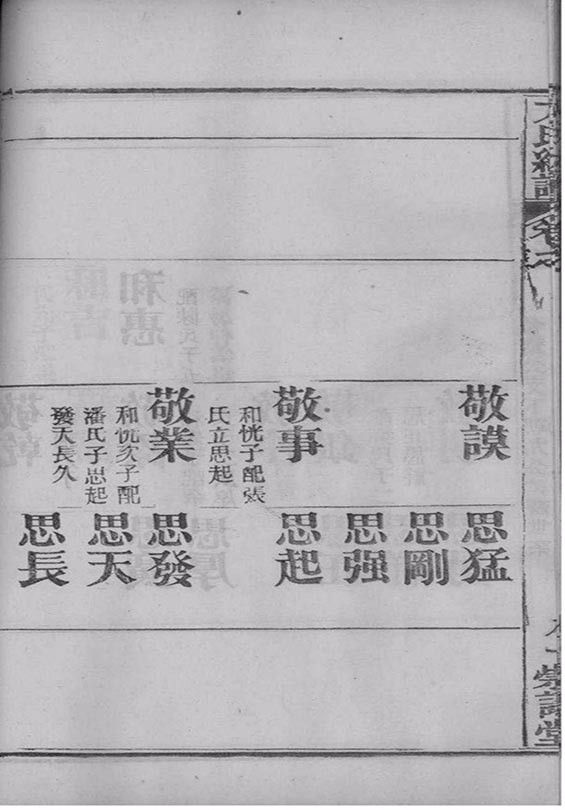 敬謨
敬事
和恍子配張
氏立思起
敬業
和恍次子配
潘氏子思起
發天長久
思猛
思剛
思强
思起
思發
思天
思長